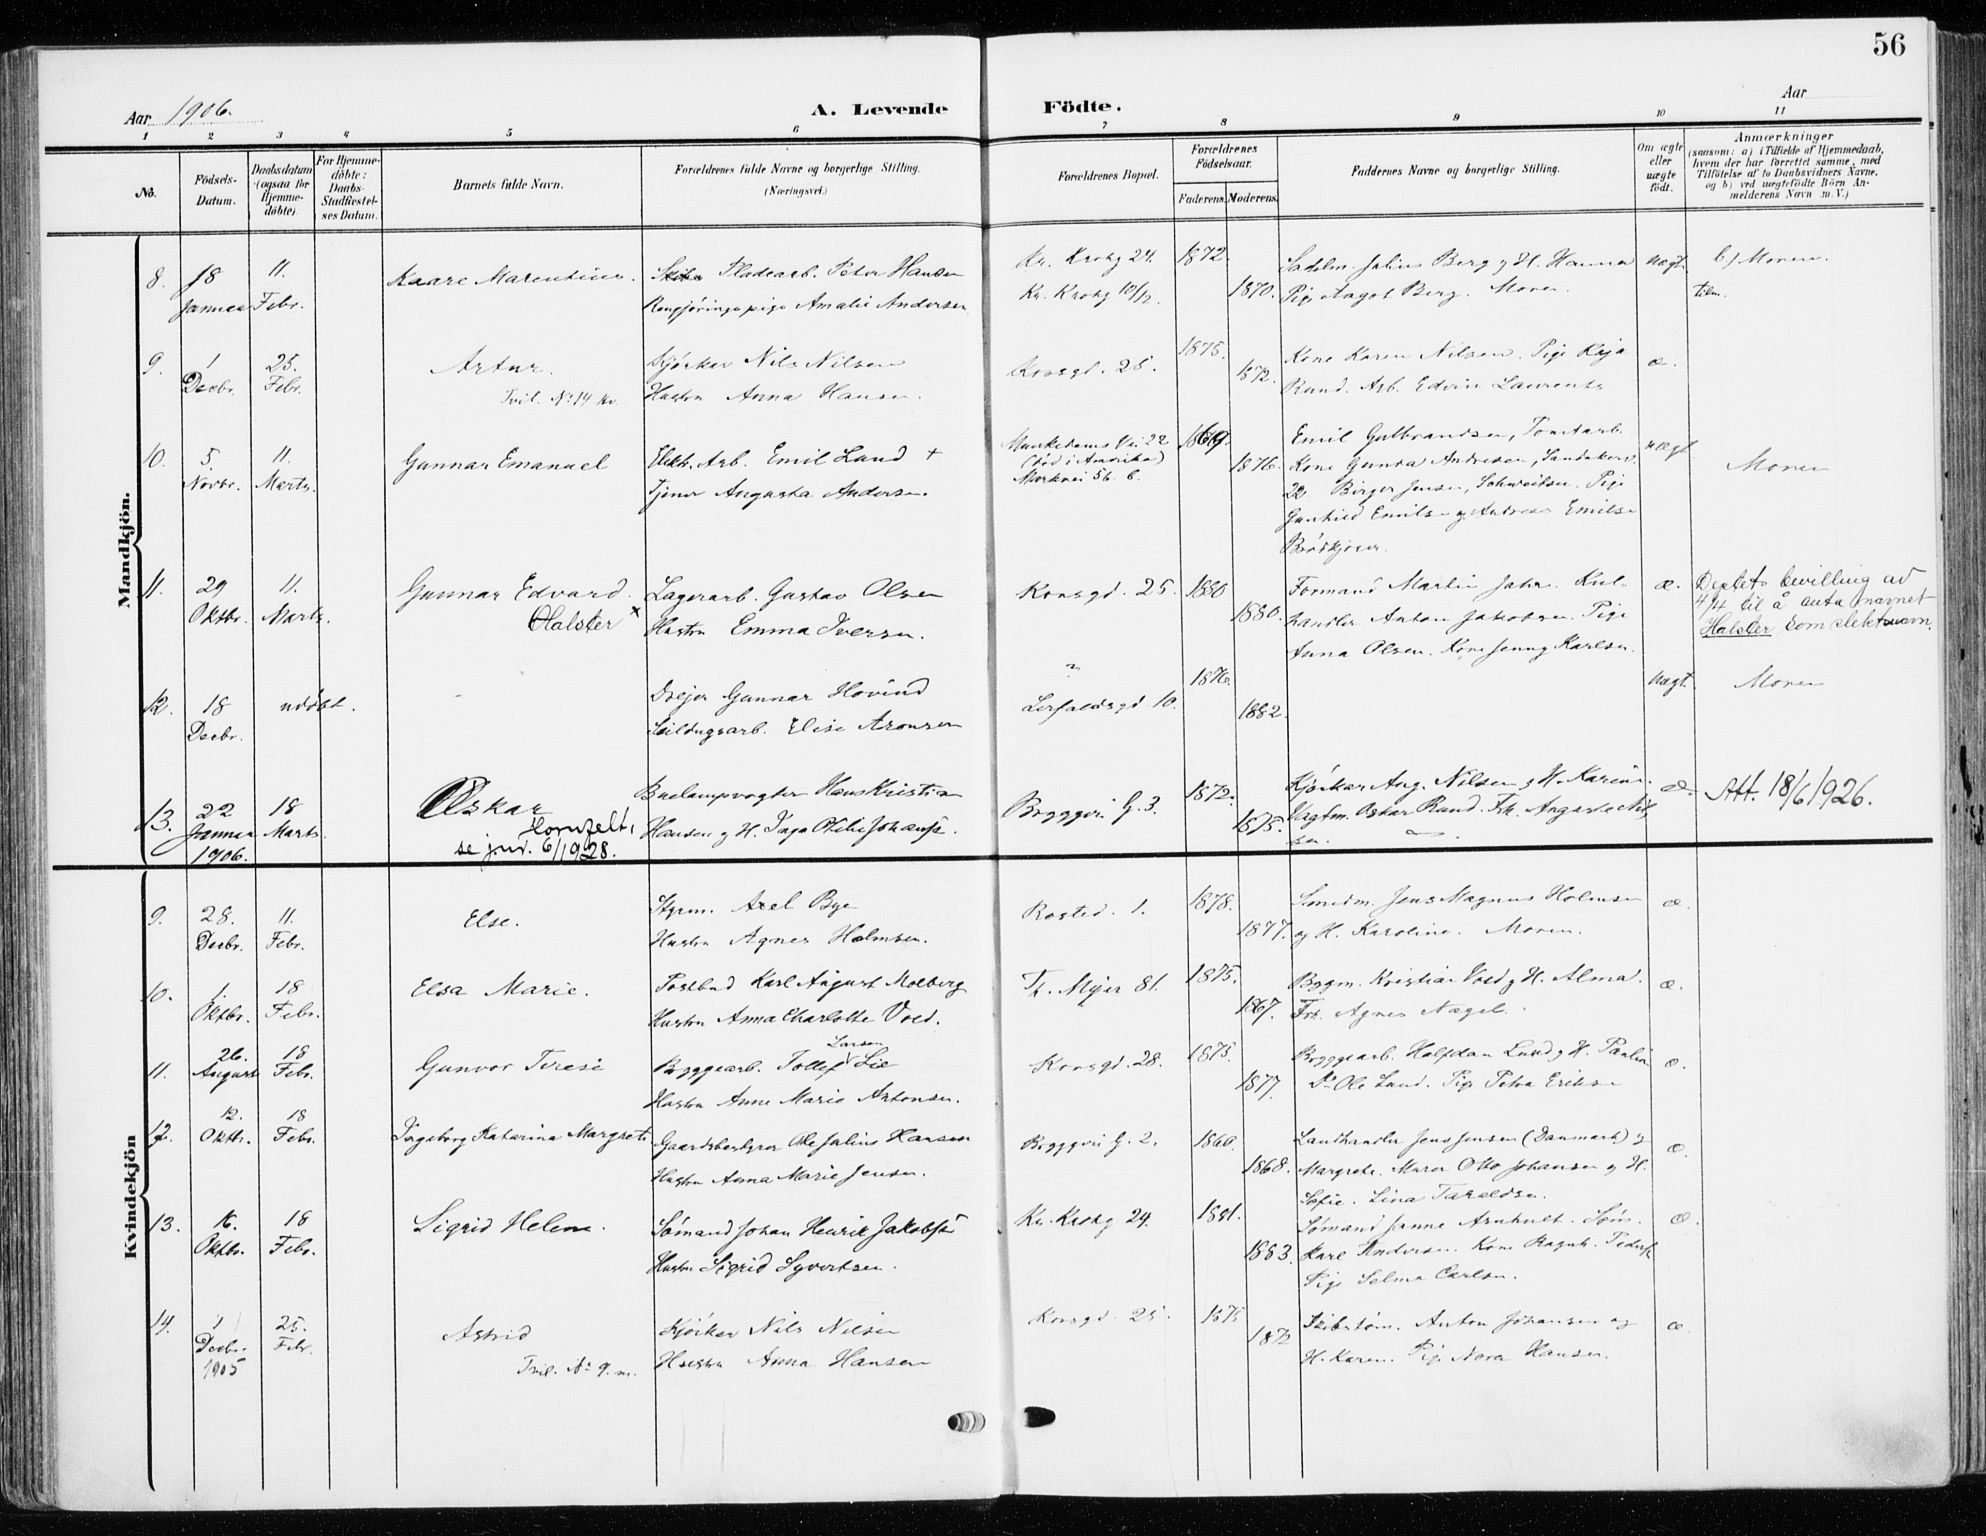 56
Aar 1906.
A. Levende Födte.
Aar
1 2 3 4 5 6 7 8 9 10 11
No.
Födsels-Datum.
Daabsdatum (ogsaa for Hjemme-döbte)
For Hjemme-döbte: Daabs-Stadfæstel-ses Datum.
Barnets fulde Navn.
Forældrenes fulde Navne og borgerlige Stilling. (Næringsvei.)
Forældrenes Bopæl.
Forældrenes Födselsaar.
Faderens. Moderens.
Faddernes Navne og borgerlige Stilling.
Om ægte eller uægte födt.
Anmærkninger
(saasom: a) i Tilfælde af Hjemmedaab,
hvem der har forrettet samme, med
Tilföielse af to Daabsvidners Navne,
og b) ved uægtefödte Börn An-
melderens Navn m. V.)
Mandkjön.
8. 18 Januar 11. Febr. Kaare Marentius. Pladearb. Peter Hansen
Rengjøringspige Amalie Andersen
Kr. Krohg 24. 1872.
Kr. Krohg 10/12. 1870.
Julius Berg og H. Hanna
Pige Aagot Berg. Moren.
uægt. b) Moren.
tilm.
9. 1 Decbr. 25. Febr. Artur.
Tvil. No 14 kv.
Kjörker Nils Nilsen
Hustru Anna Hansen.
Korsgd. 25. 1875. 1872.
Kone Karen Nilsen. Pige Kaja
Rund. Arb. Edvin Laurents
æ.
10. 5. Novbr. 11. Marts. Gunnar Emanuel
Elekt. Arb. Emil Lund +
Tjener Augusta Andersen.
Munkedams Vei 22
(död i Amerika)
Markvei 56 b.
1869. 1876.
Emil Gulbrandsen, Tomtarb.
Kone Gunda Andresen, Sandakerv.
22 Birger Jensen, Schweitsen. Pige
Gunhild Emilsen og Andreas Emilsen
Brödkjörer.
uægt. Moren
11. 29 Oktbr. 11. Marts. Gunnar Edvard.
Halster x
Lagerarb. Gustav Olsen
Hustru Emma Iversen.
Korsgd. 25. 1880 1880.
Formand Martin Jahr. Kul-
handler Anton Jakobsen. Pige
Anna Olsen. Kone Jenny Karlsen.
æ.
Deptets bevilling av
4/4 til å anta navnet
Halster som slektsnavn.
12. 18 Decbr. udöbt. -
Drejer Gunnar Hovind
Sildugsarb. Elise Aronsen
?
Lerfaldsgd. 10. 1876. 1882.
uægt. Moren
13. 22 Januar 1906. 18 Marts Oskar
Hornfelt,
se jnr. 6/1928.
Buelampvogter Hans Kristian
Hansen og H. Inga Otilie Johans.
Bryggeri G. 3. 1872. 1875.
Kjörker Aug. Nilsen og H. Karine.
Vagtm. Oskar Rund. Frk. Augusta Nil-
sen.
æ. Att. 18/6 1926.
Kvindekjön
9. 28. Decbr. 11. Febr. Else.
Styrm. Axel Bye
Hustru Agnes Holmsen.
Rosted. 1. 1878. 1877.
Jens Magnus Holmsen
og H. Karoline. Moren.
æ.
10. 1. Oktbr. 18 Febr. Elsa Marie.
Postbud Karl August Molberg
Hustru Anna Charlotte Vold.
Th. Mejer 81. 1875. 1867.
Bygm. Kristian Vold og H. Alma.
Frk. Agnes Nagel.
æ.
11. 26. August 18 Febr. Gunvor Terese
Larsen
Bryggearb. Tollef Lie
Hustru Anne Marie Antonsen.
Korsgd. 28. 1875. 1877.
Bryggearb. Halfdan Lund og H. Pauline
Do Ole Lund. Pige Petra Eriksen
æ.
12. 12. Oktbr. 18 Febr. Ingeborg Katarina Margrete
Gaardsbestyrer Ole Julius Hansen
Hustru Anna Marie Jensen.
Bryggeri G. 2. 1860. 1868.
Landhandler Jens Jensen (Danmark) og
Margrete. Murer Otto Johansen og H.
Sofie. Lina Taraldsen.
æ.
13. 16. Oktbr. 18 Febr. Sigrid Helene.
Sömand Johan Henrik Jakobsen
Hustru Sigrid Syvertsen.
Kr. Krohg 24. 1881. 1883.
Sömand Janne Arnhult. Söm.
Karl Andersen. Kone Ragnh. Peders.
Pige Selma Carlsen.
æ.
14. 1 Decbr. 1905 25. Febr. Astrid
Tvil. No 9. m.
Kjörker Nils Nilsen
Hustru Anna Hansen
Korsgd. 25. 1875 1872
Anton Johansen og
H. Karen. Pige Nora Hansen.
æ.